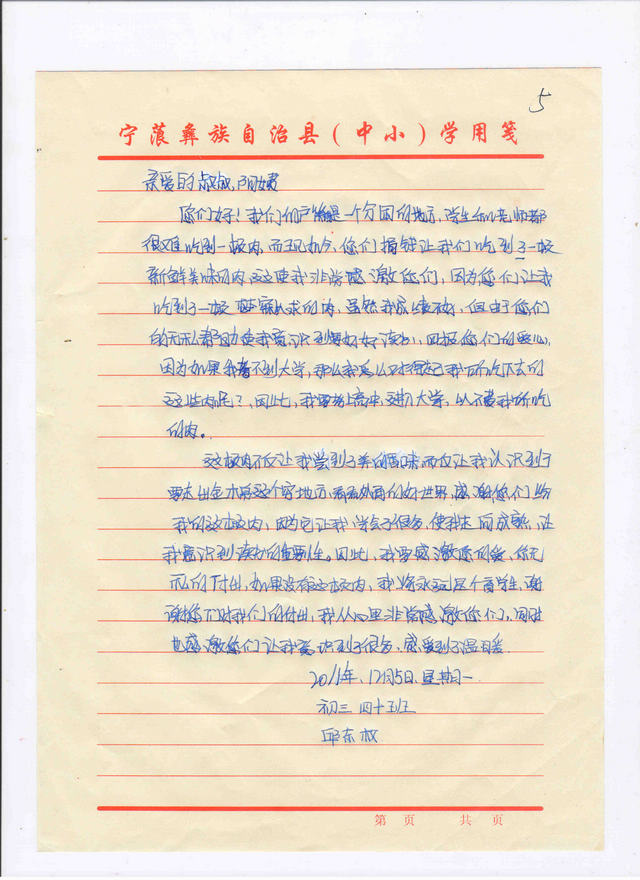 5
宁蒗彝族自治县(中小)学用笺
亲爱的叔叔,阿姨
您们好!我们们是一个穷困的地方,学生和老师都
很难吃到一顿肉,而现如今,您们捐钱让我们吃到了一顿
新鲜美味的肉,这使我非常感激您们,因为您们让我
吃到了一顿求的肉,虽然我成绩不好,但由于您们
的无私帮助使我意识到要好好读书,回报您们的爱心,
因为如果我考不到大学,那么我怎么对得起我所吃下去的
这些肉呢?,因此,我要考上高中,这初大学,以不费我所吃
的肉。
这顿肉不仅让我尝到了美的味,而仅让我认识到了
要走出金木这个穷地方,看看外面的好世界,感谢您们给
我的这顿肉,因为它让我学会了很多,使我走向成熟,让
我意识到读书的重要性。因此,我要感激您们爱,你无
私的付出,如果没有这顿肉,我将永远是个高学生,谢
谢您们对我们的付出,我从心里非常感激您们,同时
也感激您们让我意识到了很多,感受到了温暖。
2011年,12月5日,星期一
初三 四十班
邱东权
第 页 共 页